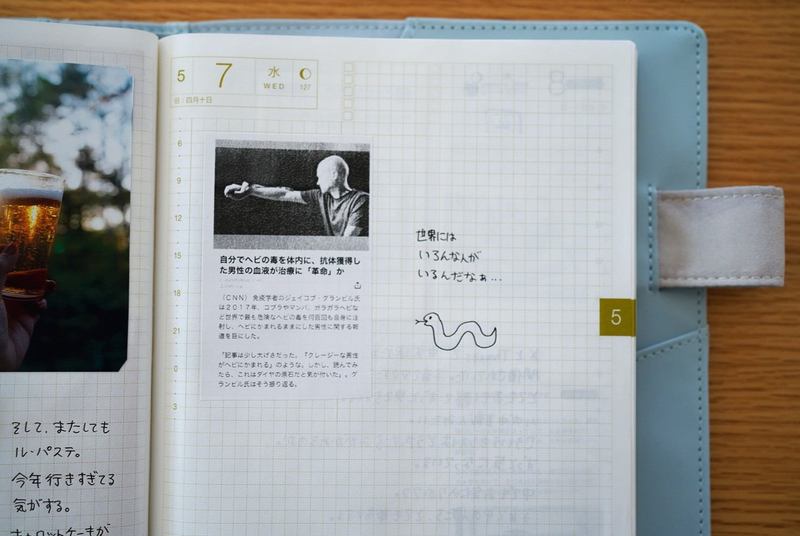 そして、またしても
ル・パステ。
今年行きすぎてる
気がする。
キャロットケーキが
5 7 水 WED 127
四月十日
6
9
12
15
18
21
3
自分でヘビの毒を体内に、抗体獲得し
た男性の血液が治療に「革命」か
(CNN) 免疫学者のジェイコブ・グランビル氏
は2017年、コブラやマンバ、ガラガラヘビな
ど世界で最も危険なヘビの毒を何百回も自身に注
射し、ヘビにかまれるままにした男性に関する報
道を目にした。
「記事は少し大げさだった。『クレージーな男性
がヘビにかまれる』のような。しかし、読んでみ
たら、これはダイヤの原石だと気が付いた」。グ
ランビル氏はそう振り返る。
世界には
いろんな人が
いるんだなぁ…
5